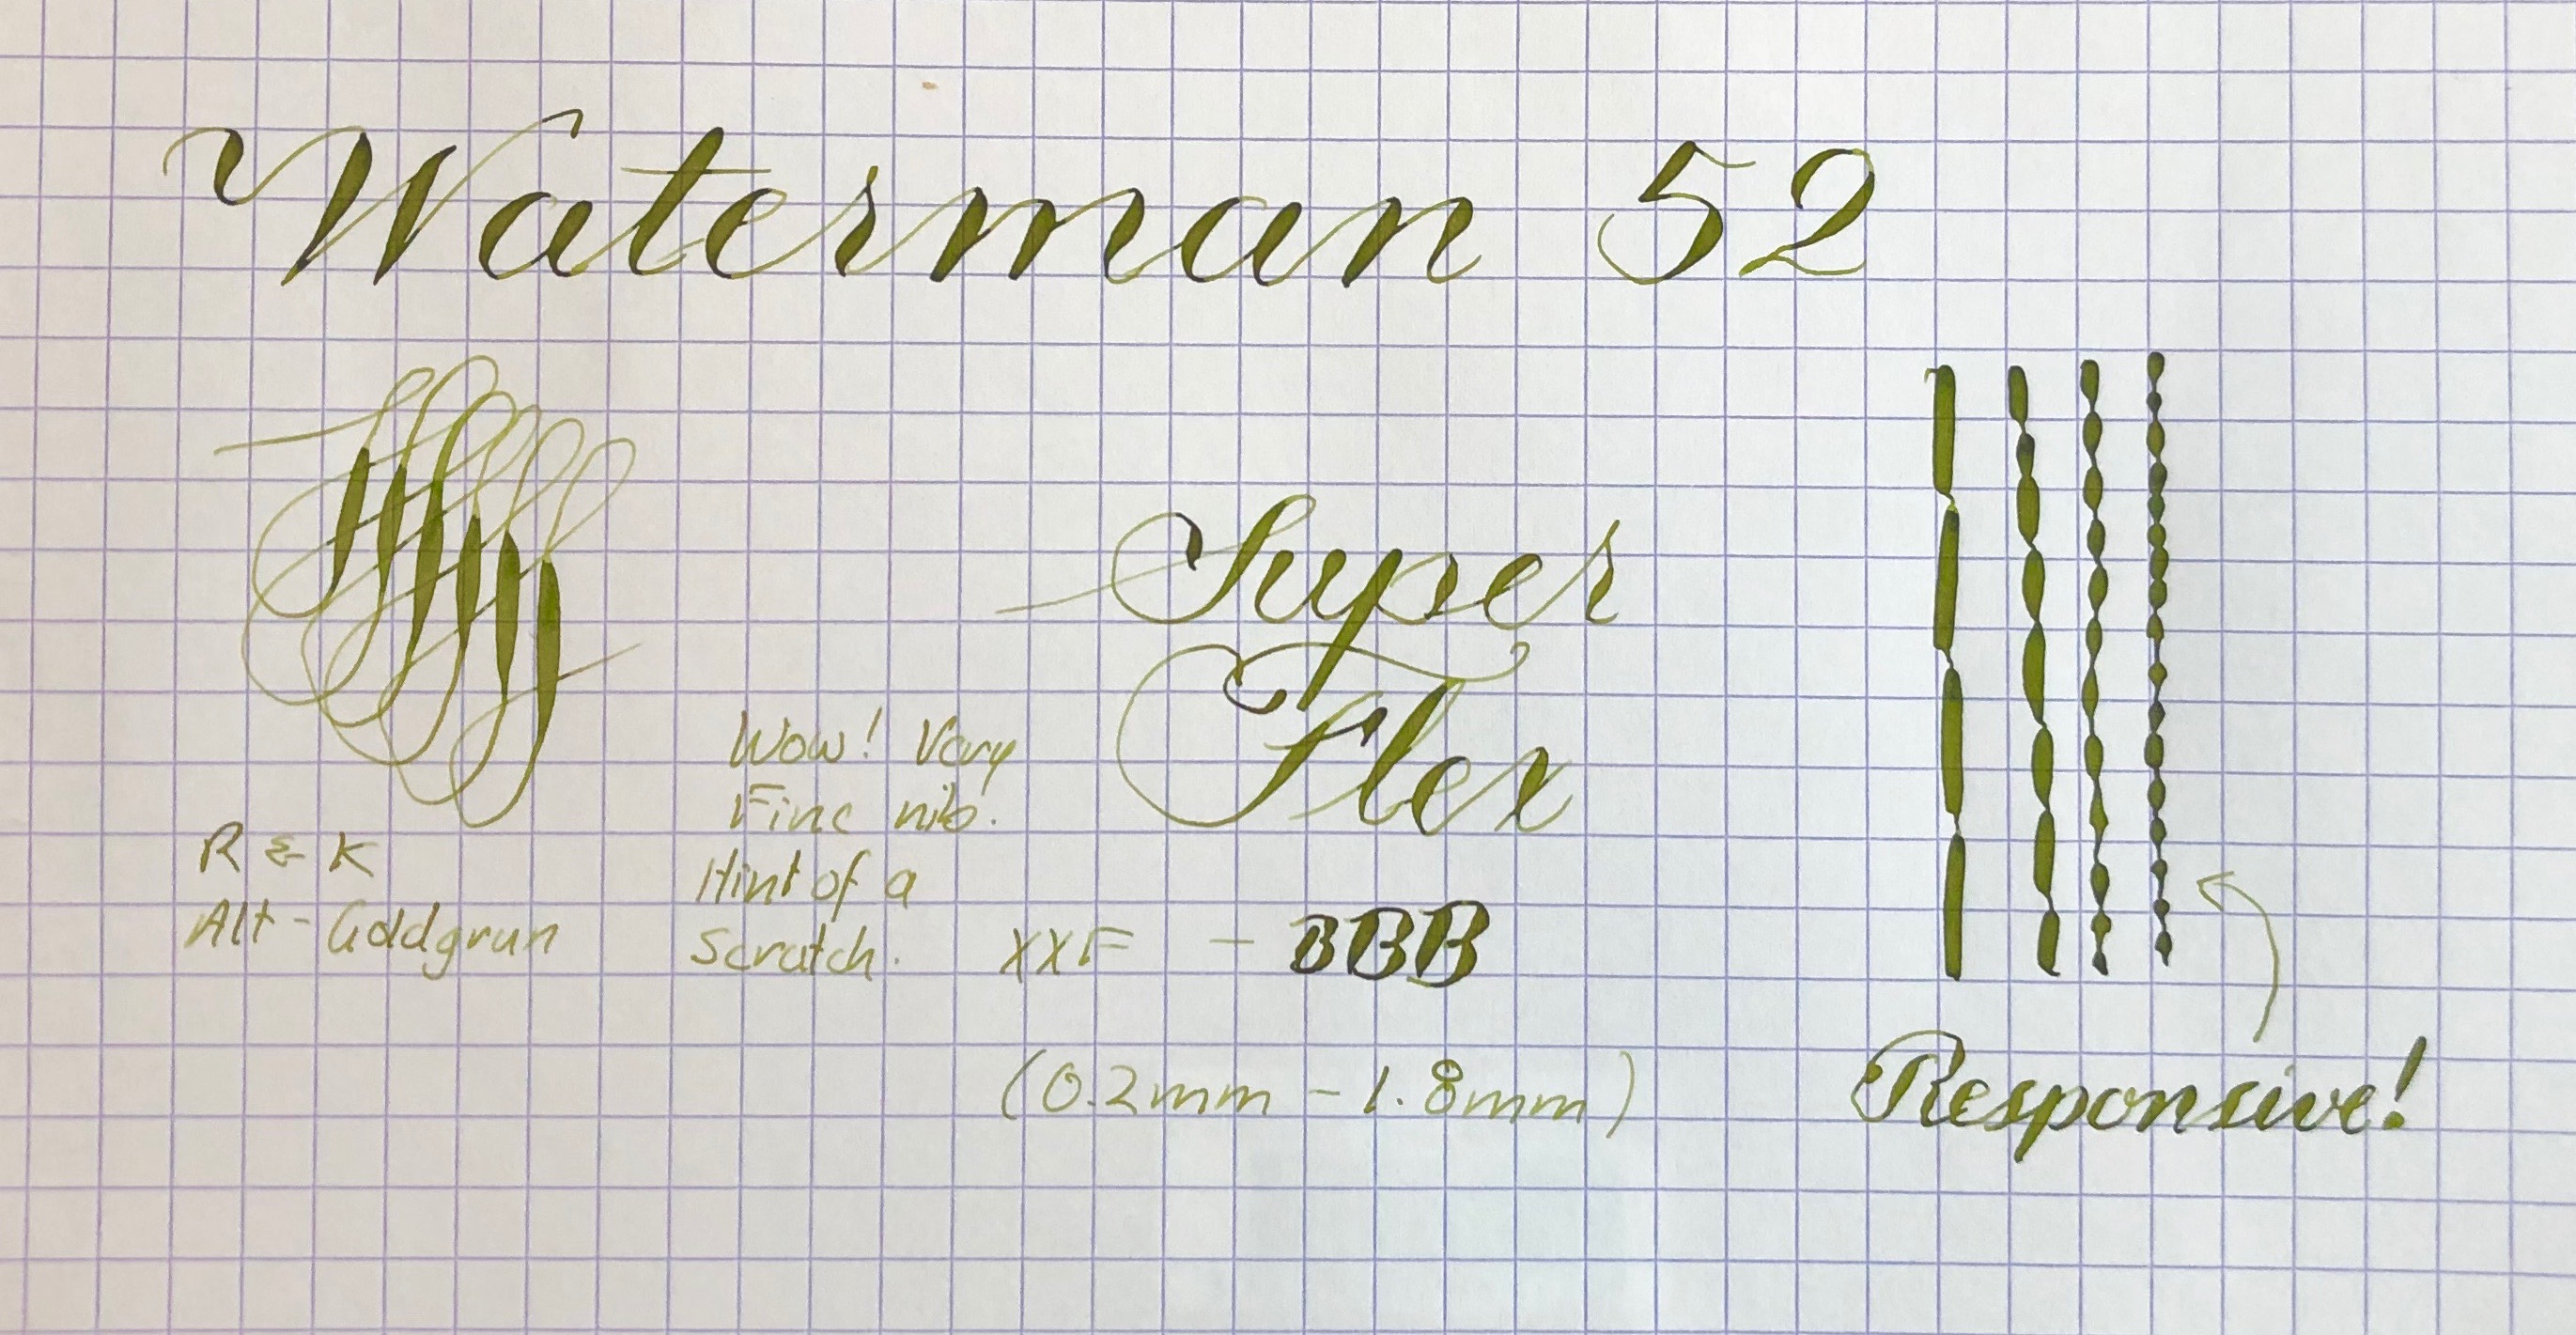 Waterman 52
Super
Flex
Wow! Very
Fine nib!
Hint of a
Scratch.
R & K
Alt-Goldgrun
XXF - BBB
(0.2mm - 1.8mm)
Responsive!